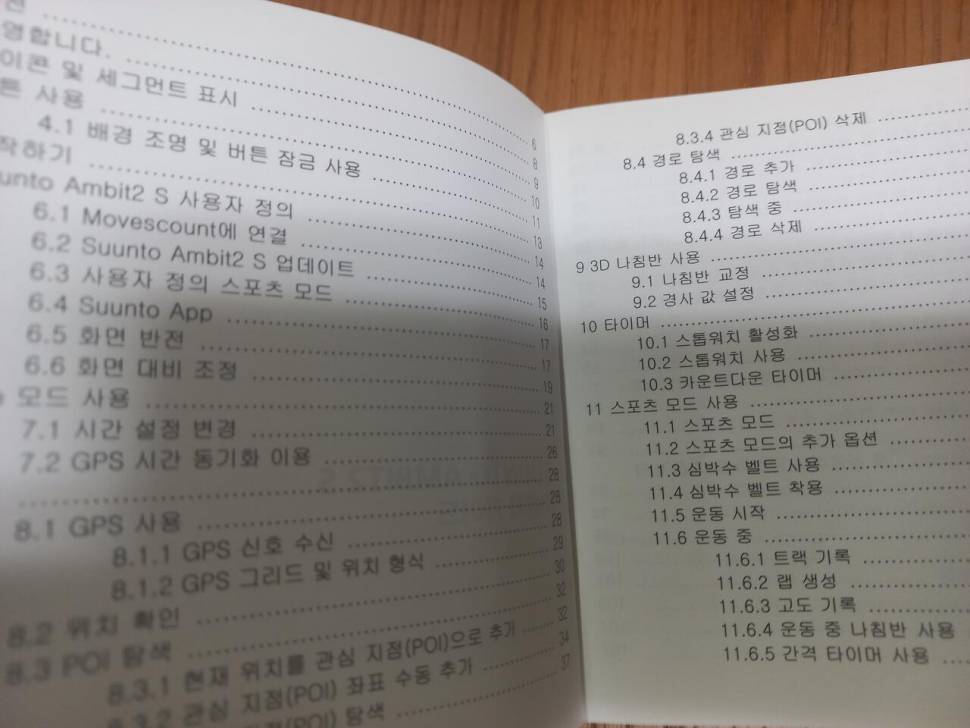 전
영합니다.
이콘 및 세그먼트 표시 6
튼 사용 8
4.1 배경 조명 및 버튼 잠금 사용 9
작하기 10
unto Ambit2 S 사용자 정의 11
6.1 Movescount에 연결 13
6.2 Suunto Ambit2 S 업데이트 14
6.3 사용자 정의 스포츠 모드 14
6.4 Suunto App 15
6.5 화면 반전 16
6.6 화면 대비 조정 17
모드 사용 17
7.1 시간 설정 변경 19
7.2 GPS 시간 동기화 이용 21
21
8.1 GPS 사용 26
8.1.1 GPS 신호 수신 28
8.1.2 GPS 그리드 및 위치 형식 28
8.2 위치 확인 28
8.3 POI 탐색 29
8.3.1 현재 위치를 관심 지점(POI)으로 추가 30
8.3.2 관심 지점(POI) 좌표 수동 추가 32
지점(POI) 탐색 32
34
37
8.3.4 관심 지점(POI) 삭제
8.4 경로 탐색
8.4.1 경로 추가
8.4.2 경로 탐색
8.4.3 탐색 중
8.4.4 경로 삭제
9 3D 나침반 사용
9.1 나침반 교정
9.2 경사 값 설정
10 타이머
10.1 스톱워치 활성화
10.2 스톱워치 사용
10.3 카운트다운 타이머
11 스포츠 모드 사용
11.1 스포츠 모드
11.2 스포츠 모드의 추가 옵션
11.3 심박수 벨트 사용
11.4 심박수 벨트 착용
11.5 운동 시작
11.6 운동 중
11.6.1 트랙 기록
11.6.2 랩 생성
11.6.3 고도 기록
11.6.4 운동 중 나침반 사용
11.6.5 간격 타이머 사용